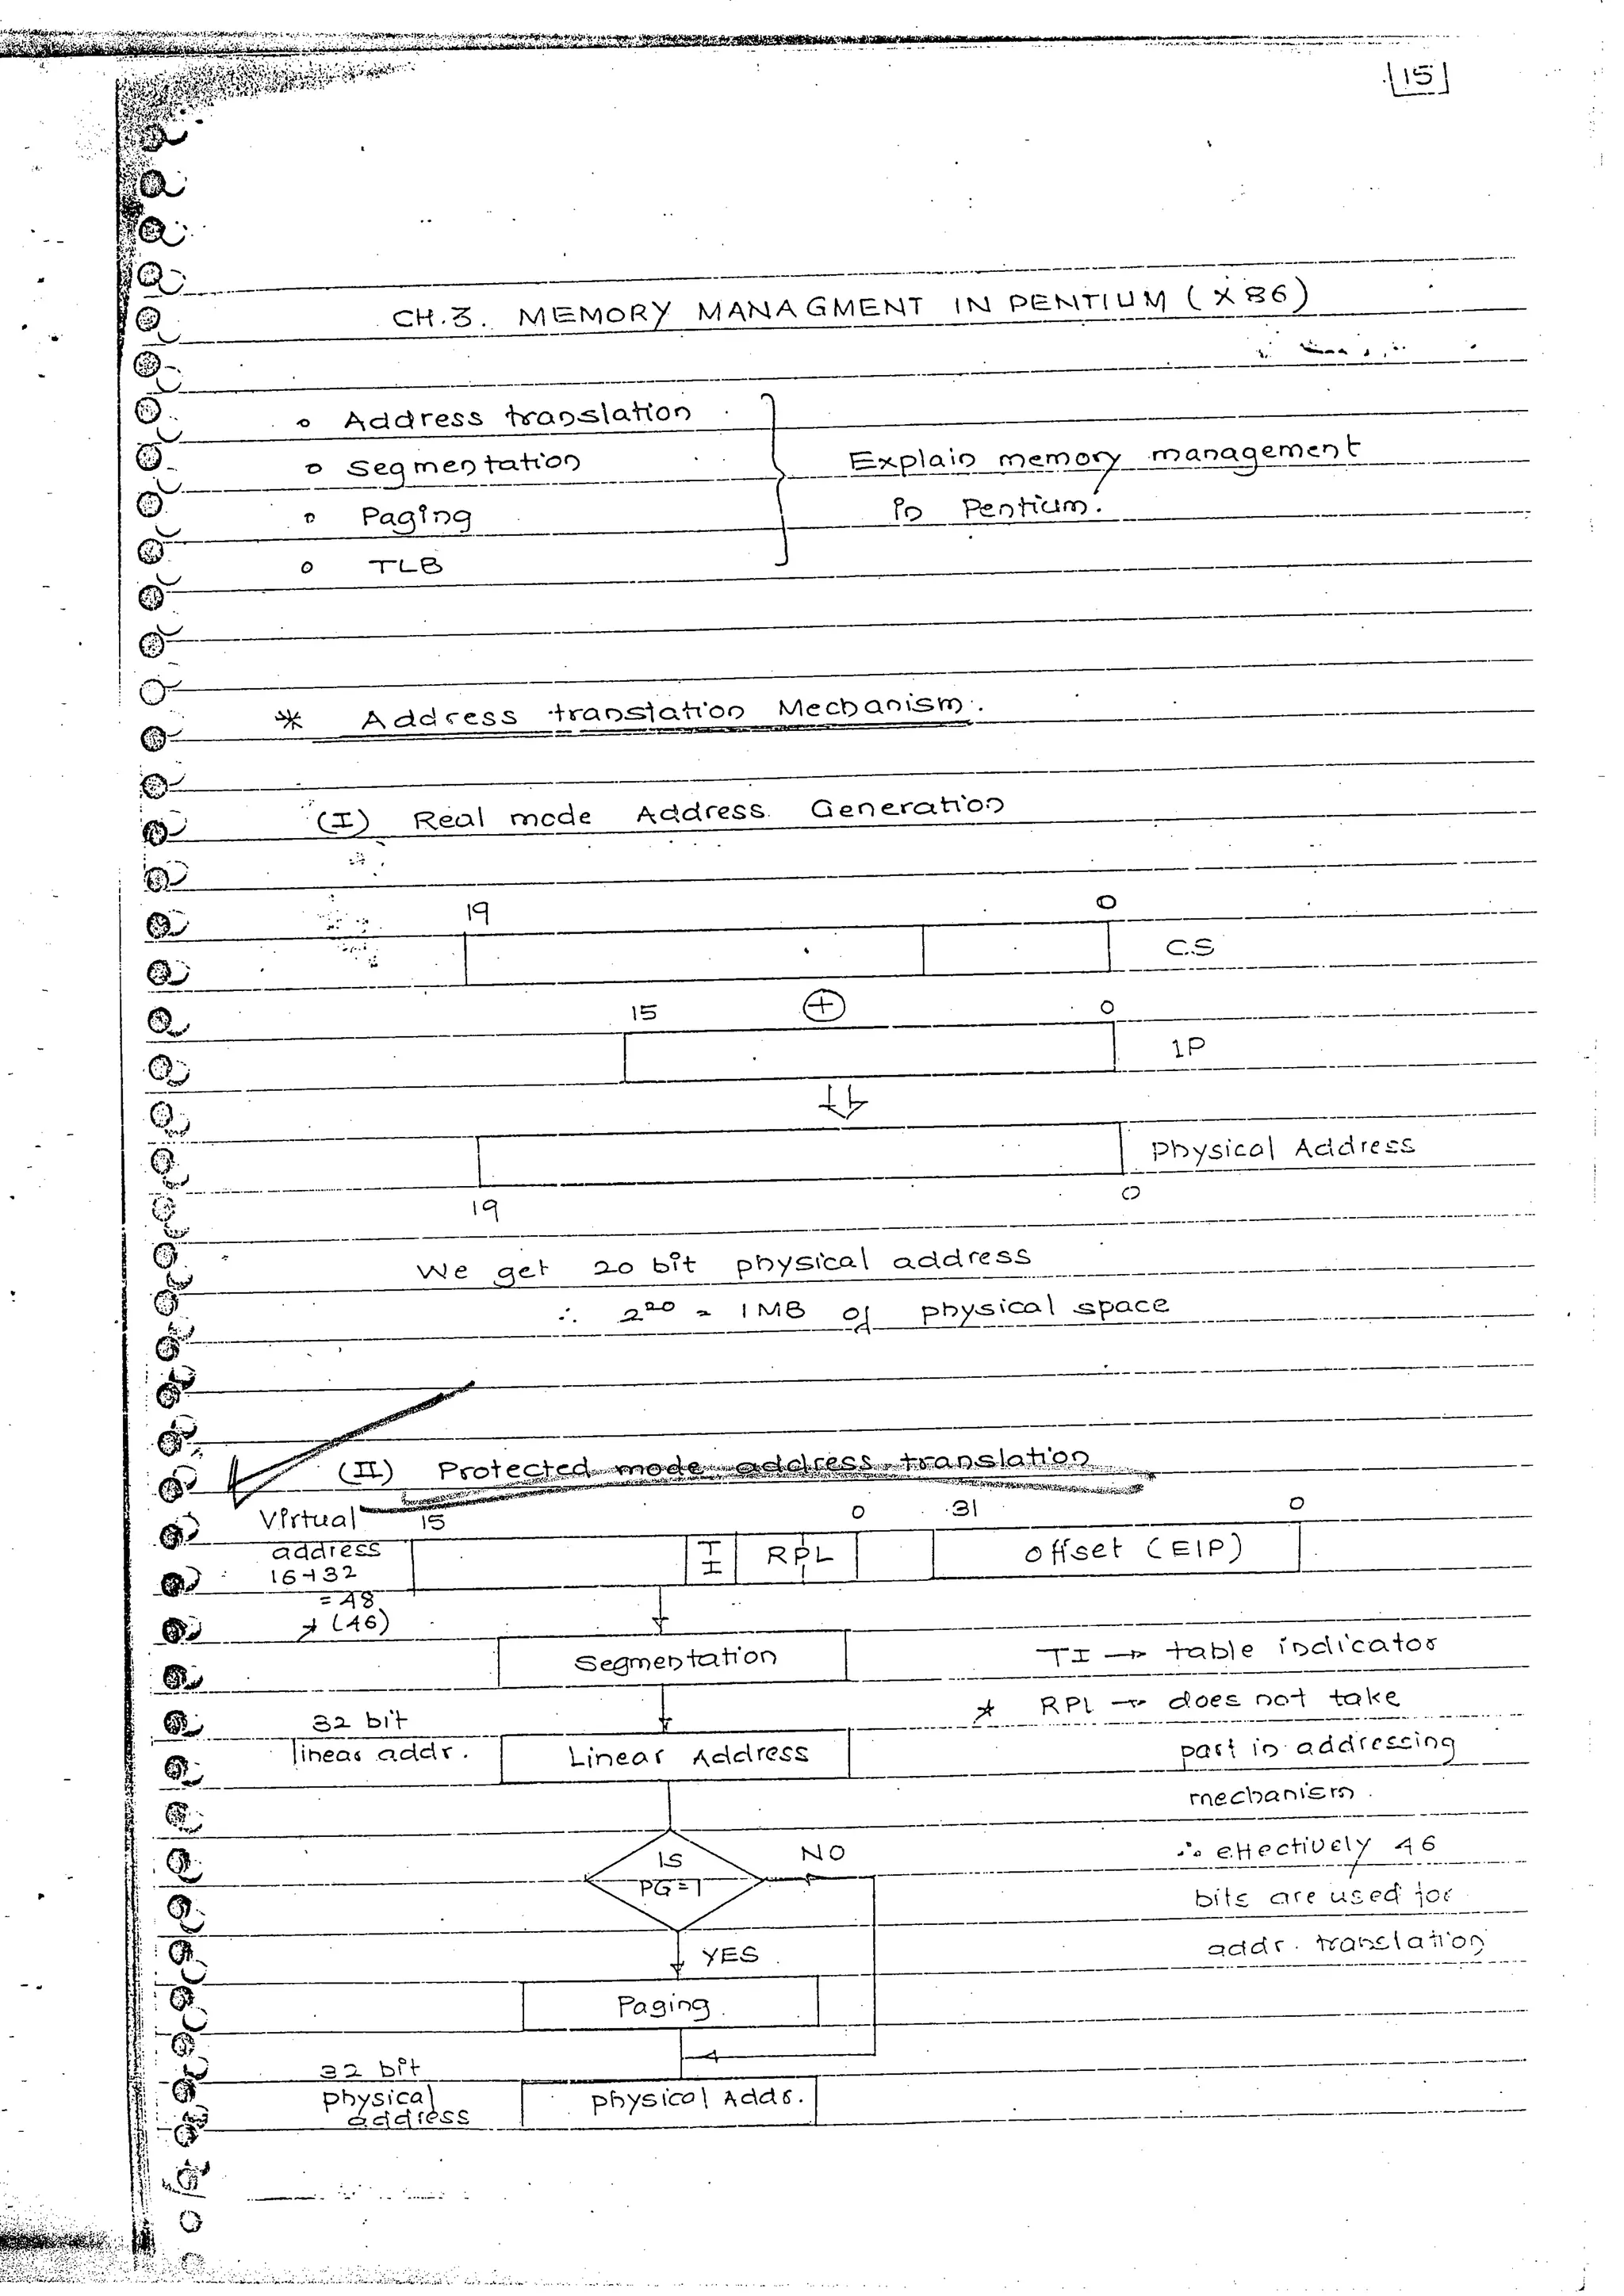 15
CH.3. MEMORY MANAGMENT IN PENTIUM (X86)
o Address translation
o Segmentation
o Paging
o TLB
Explain memory management
in Pentium.
* Address translation Mechanism.
(I) Real mode Address Generation
19 0
C.S
15 + 0
IP
Physical Address
19 0
We get 20 bit physical address
∴ 2²⁰ = 1MB of physical space
(II) Protected mode address translation
Virtual 15 0 31 0
address TI RPL offset (EIP)
16+32
=48
* (46)
Segmentation
TI → table indicator
32 bit
linear addr.
Linear Address
* RPL → does not take
part in addressing
mechanism.
IS
PG=1
NO
∴ effectively 46
bits are used for
addr. translation
YES
Paging
32 bit
physical
address
physical Addr.